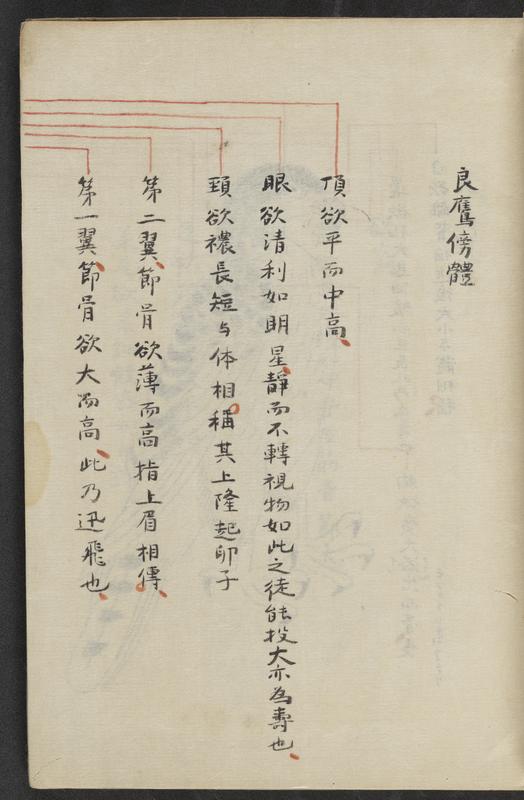 良鷹傍體
頂欲平而中高
眼欲清利如明星靜而不轉視物如此之徒能投大亦為壽也
頚欲禯長短与体相稱其上隆起卵子
第二翼節骨欲薄而高指上眉相傳
第一翼節骨欲大而高此乃迅飛也